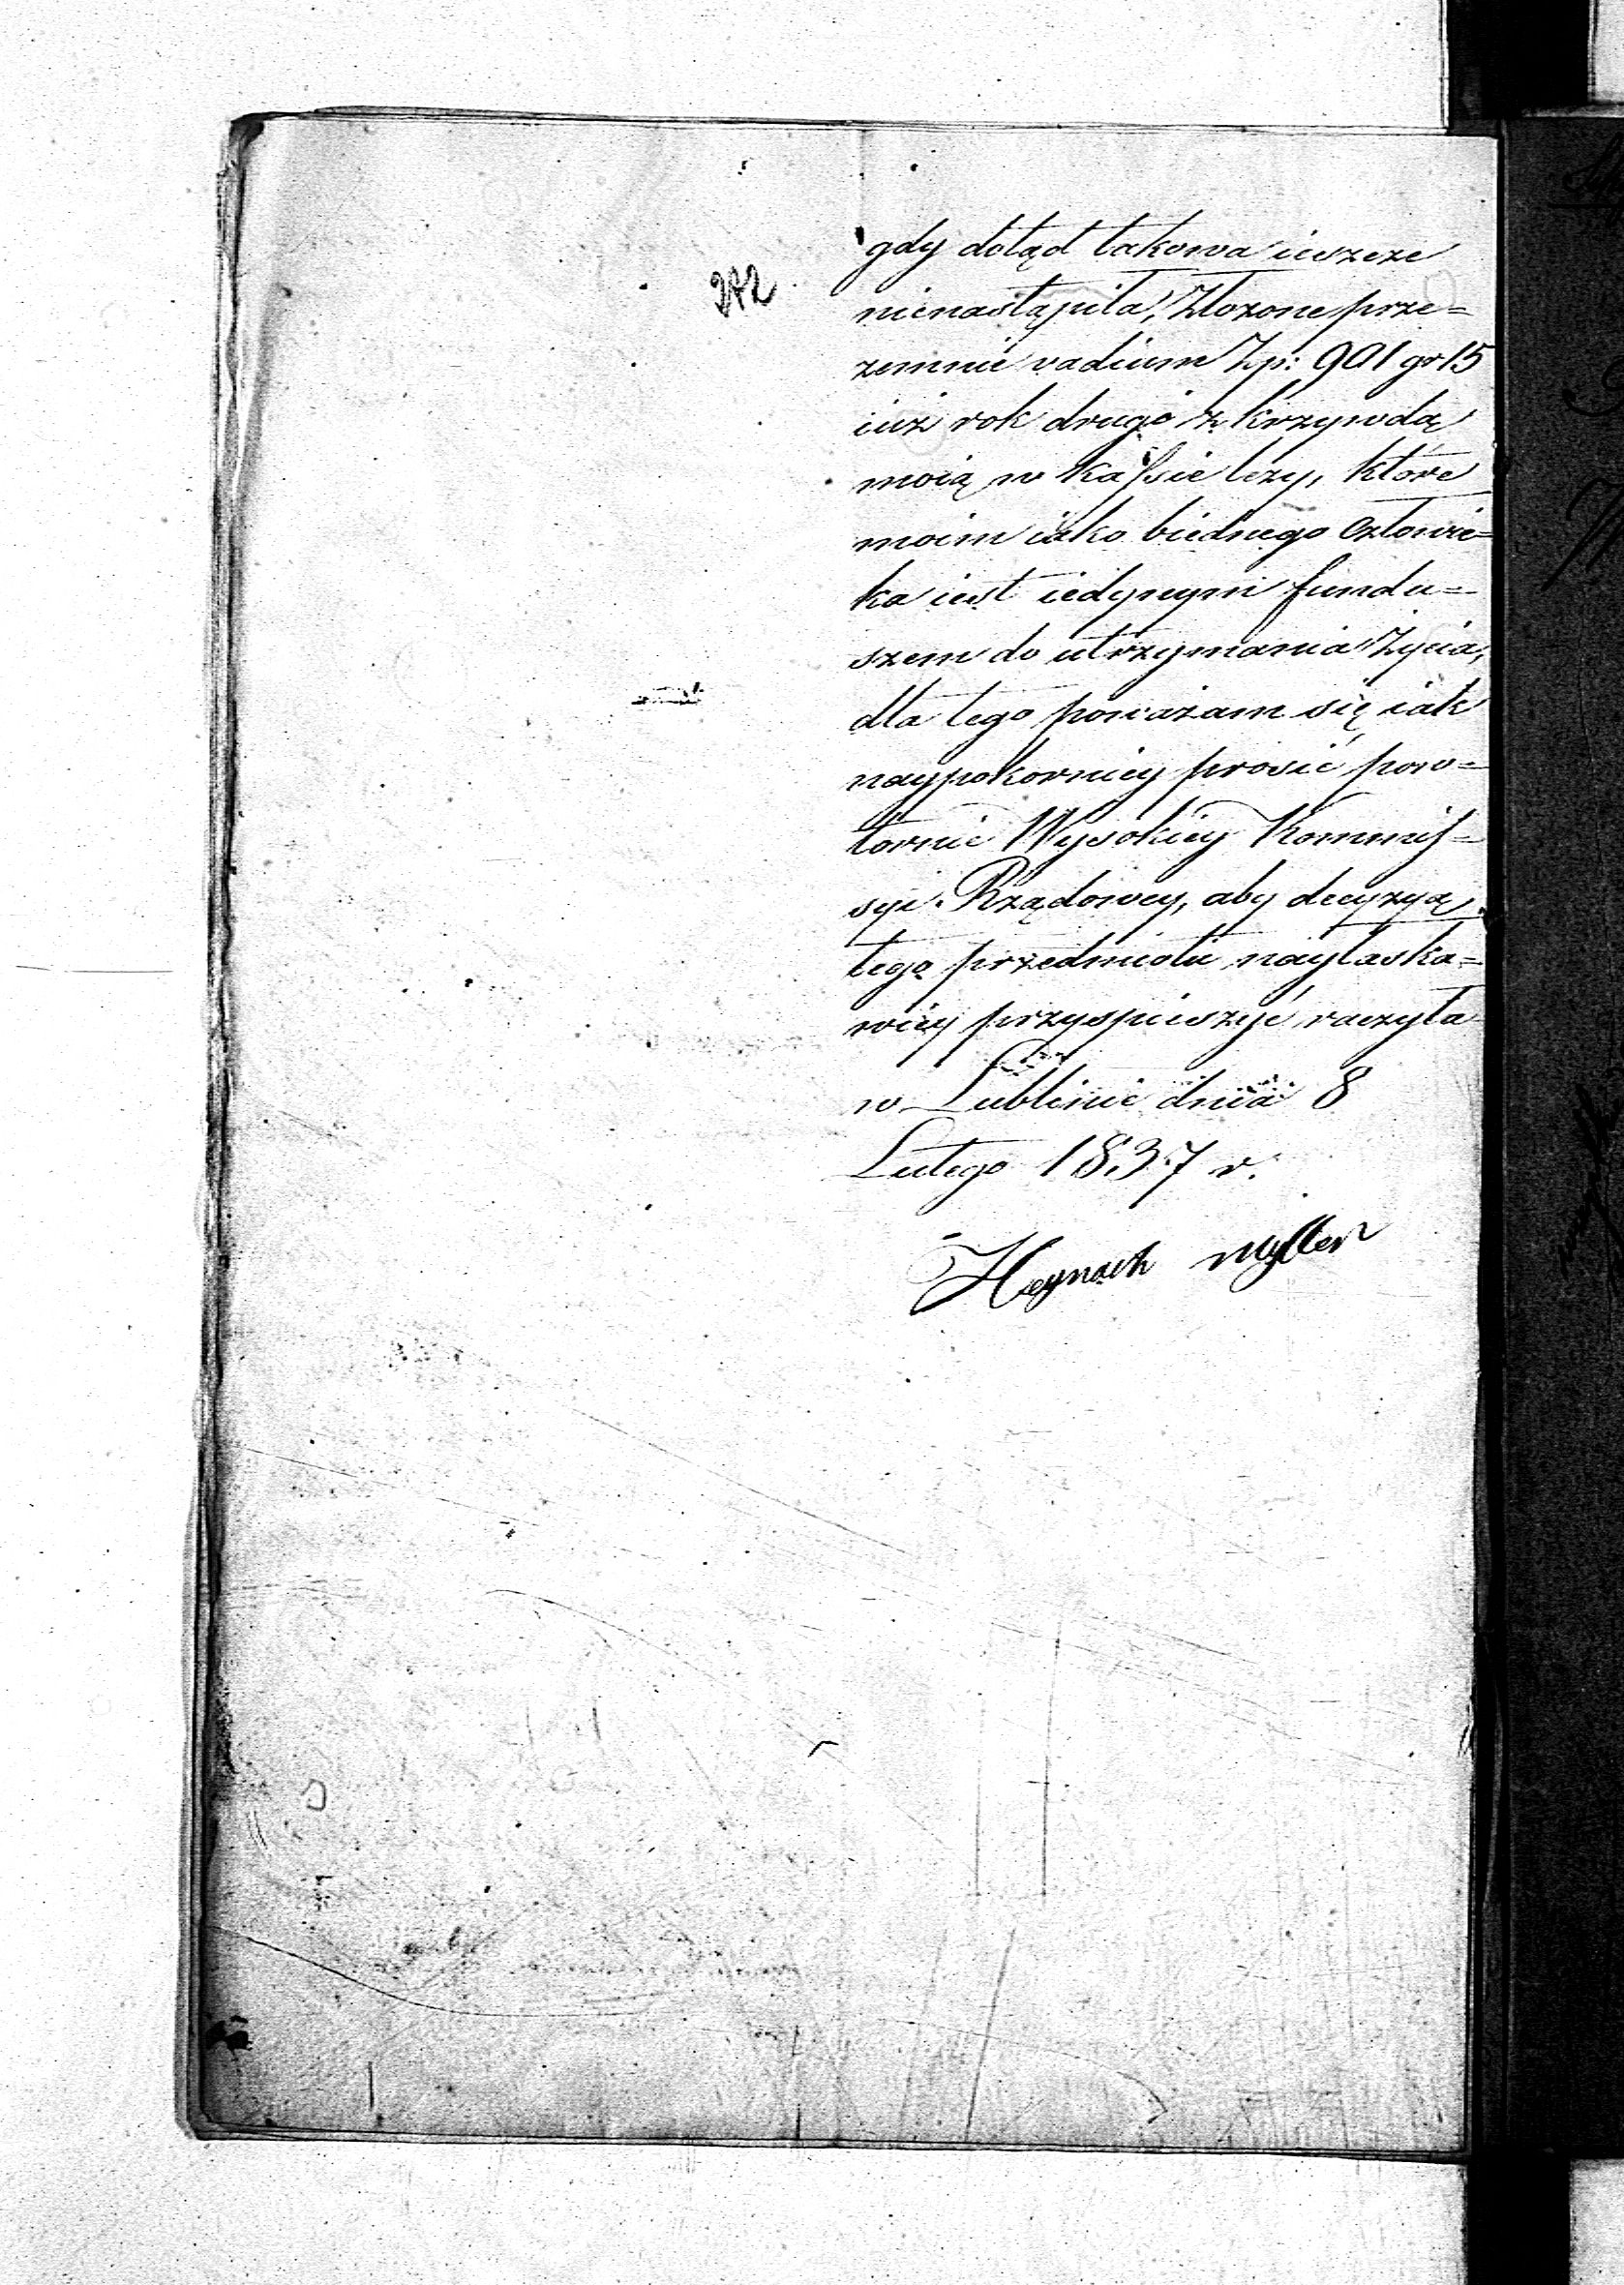 gdy dotąd takowa ieszcze
nienastąpiła, Złożone prze=
zemnie vadium Zp: 901 gr 15
iuż rok drugi z krzywdą
moią w kassie leży, które
moim iako biednego Człowie=
ka iest iedynym fundu=
szem do utrzymania Życia,
dla tego poważam się iak
naypokorniey prosić pow=
tornie Wysokiey Kommis=
syi Rządowey, aby decyzyą
tego przedmiotu nayłaska=
wiey przyspieszyć raczyła
w Lublinie dnia 8
Lutego 1837 r.
Heynach Myller